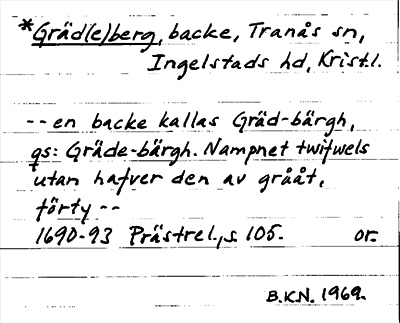 *Gräd(e)berg, backe, Tranås sn,
Ingelstads hd, Kristl.
-- en backe kallas Gräd-bärgh,
qs: Gräde-bärgh. Nampnet twifwels
utan hafver den av grååt,
förty --
1690-93 Prästrel., s. 105. or.
B.K.N. 1969.